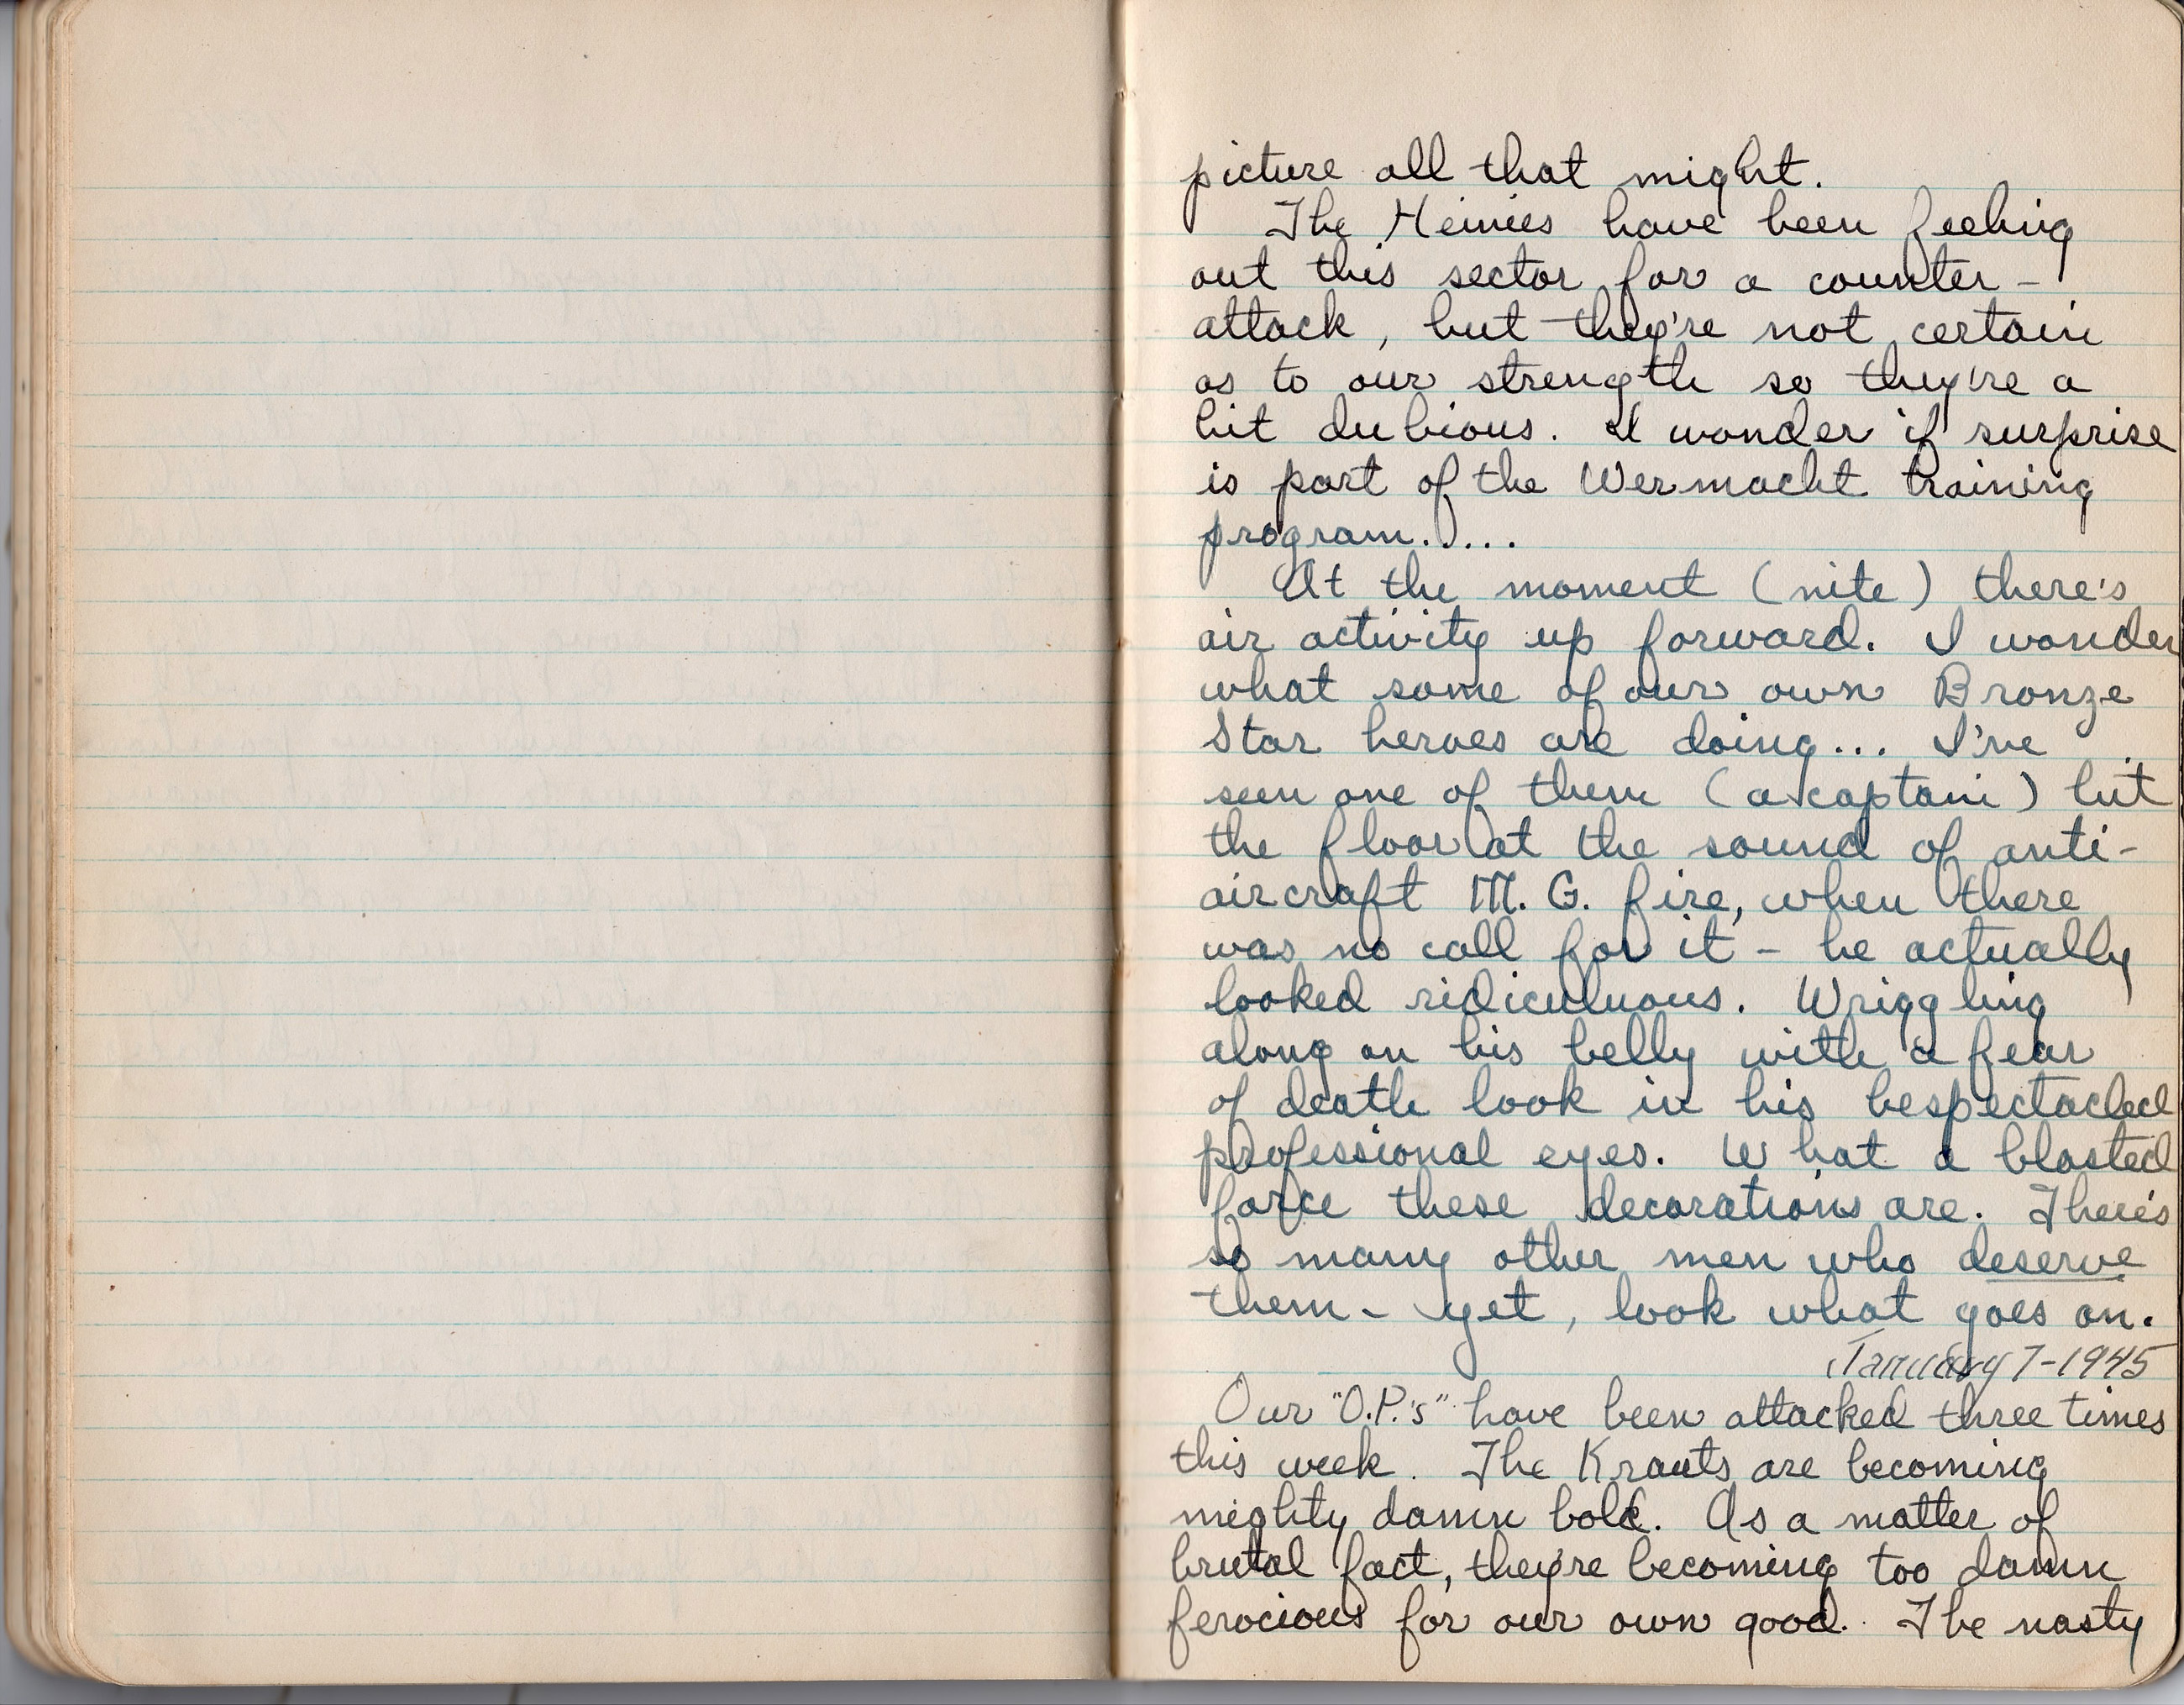 picture all that might.
The Heinies have been feeling
out this sector for a counter-
attack, but they're not certain
as to our strength so they're a
bit dubious. I wonder if surprise
is part of the Wermacht training
program.....
At the moment (nite) there's
air activity up forward. I wonder
what some of our own Bronze
Star heroes are doing... I've
seen one of them (a captain) hit
the floor at the sound of anti-
aircraft M. G. fire, when there
was no call for it - he actually
looked ridiculuous. Wriggling
along on his belly with a fear
of death look in his bespectacled
professional eyes. What a blasted
farce these decorations are. There's
so many other men who deserve
them - yet, look what goes on.
January 7-1945
Our "O.P.'s" have been attacked three times
this week. The Krauts are becoming
mighty damn bold. As a matter of
brutal fact, they're becoming too damn
ferocious for our own good. The nasty